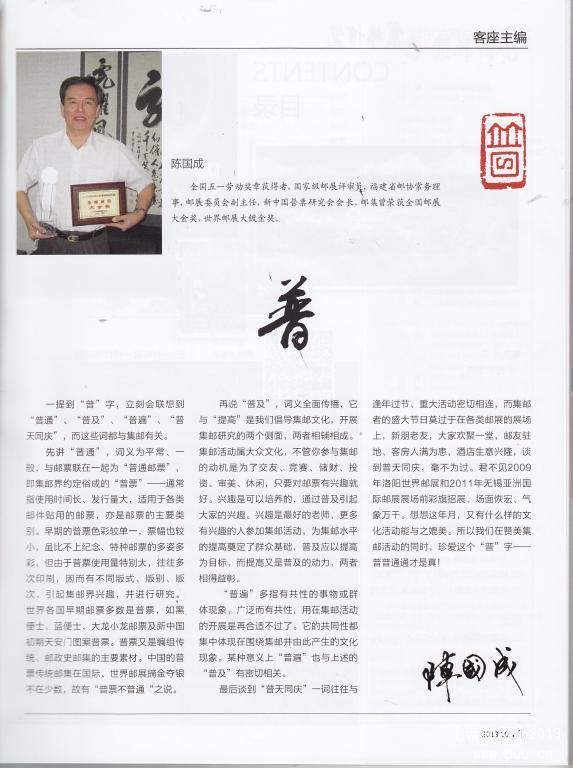 客座主编
陈国成
全国五一劳动奖章获得者，国家级邮展评审员，福建省邮协常务理
事，邮展委员会副主任，新中国普票研究会会长，邮集曾荣获全国邮展
大金奖，世界邮展大镀金奖。
普
一提到“普”字，立刻会联想到
“普通”、“普及”、“普遍”、“普
天同庆”，而这些词都与集邮有关。
先讲“普通”，词义为平常、一
般，与邮票联在一起为“普通邮票”，
即集邮界约定俗成的“普票”——通常
指使用时间长、发行量大，适用于各类
邮件贴用的邮票，亦是邮票的主要类
别。早期的普票色彩较单一，票幅也较
小，虽比不上纪念、特种邮票的多姿多
彩，但由于普票使用量特别大，往往多
次印刷，因而有不同版式、版别、版
次，引起集邮界兴趣，并进行研究。
世界各国早期邮票多数是普票，如黑
便士、蓝便士，大龙小龙邮票及新中国
初期天安门图案普票。普票又是编组传
统、邮政史邮集的主要素材。中国的普
票传统邮集在国际、世界邮展摘金夺银
不在少数，故有“普票不普通“之说。
再说“普及”，词义全面传播，它
与“提高”是我们倡导集邮文化，开展
集邮研究的两个侧面，两者相辅相成。
集邮活动属大众文化，不管你参与集邮
的动机是为了交友、竞赛、储财、投
资、审美、休闲，只要对邮票有兴趣就
好。兴趣是可以培养的，通过普及引起
大家的兴趣。兴趣是最好的老师，更多
有兴趣的人参加集邮活动，为集邮水平
的提高奠定了群众基础，普及应以提高
为目标，而提高又是普及的动力，两者
相得益彰。
“普遍”多指有共性的事物或群
体现象，广泛而有共性，用在集邮活动
的开展是再合适不过了。它的共同性都
集中体现在围绕集邮并由此产生的文化
现象。某种意义上“普遍”也与上述的
“普及”有密切相关。
最后谈到“普天同庆”一词往往与
逢年过节、重大活动密切相连，而集邮
者的盛大节日莫过于在各类邮展的展场
上，新朋老友，大家欢聚一堂，邮友驻
地、客房人满为患，酒店生意兴隆，谈
到普天同庆，毫不为过。君不见2009
年洛阳世界邮展和2011年无锡亚洲国
际邮展展场前彩旗招展、场面恢宏、气
象万千。想想这年月，又有什么样的文
化活动能与之媲美。所以我们在赞美集
邮活动的同时，珍爱这个“普”字——
普普通通才是真！
陈国成